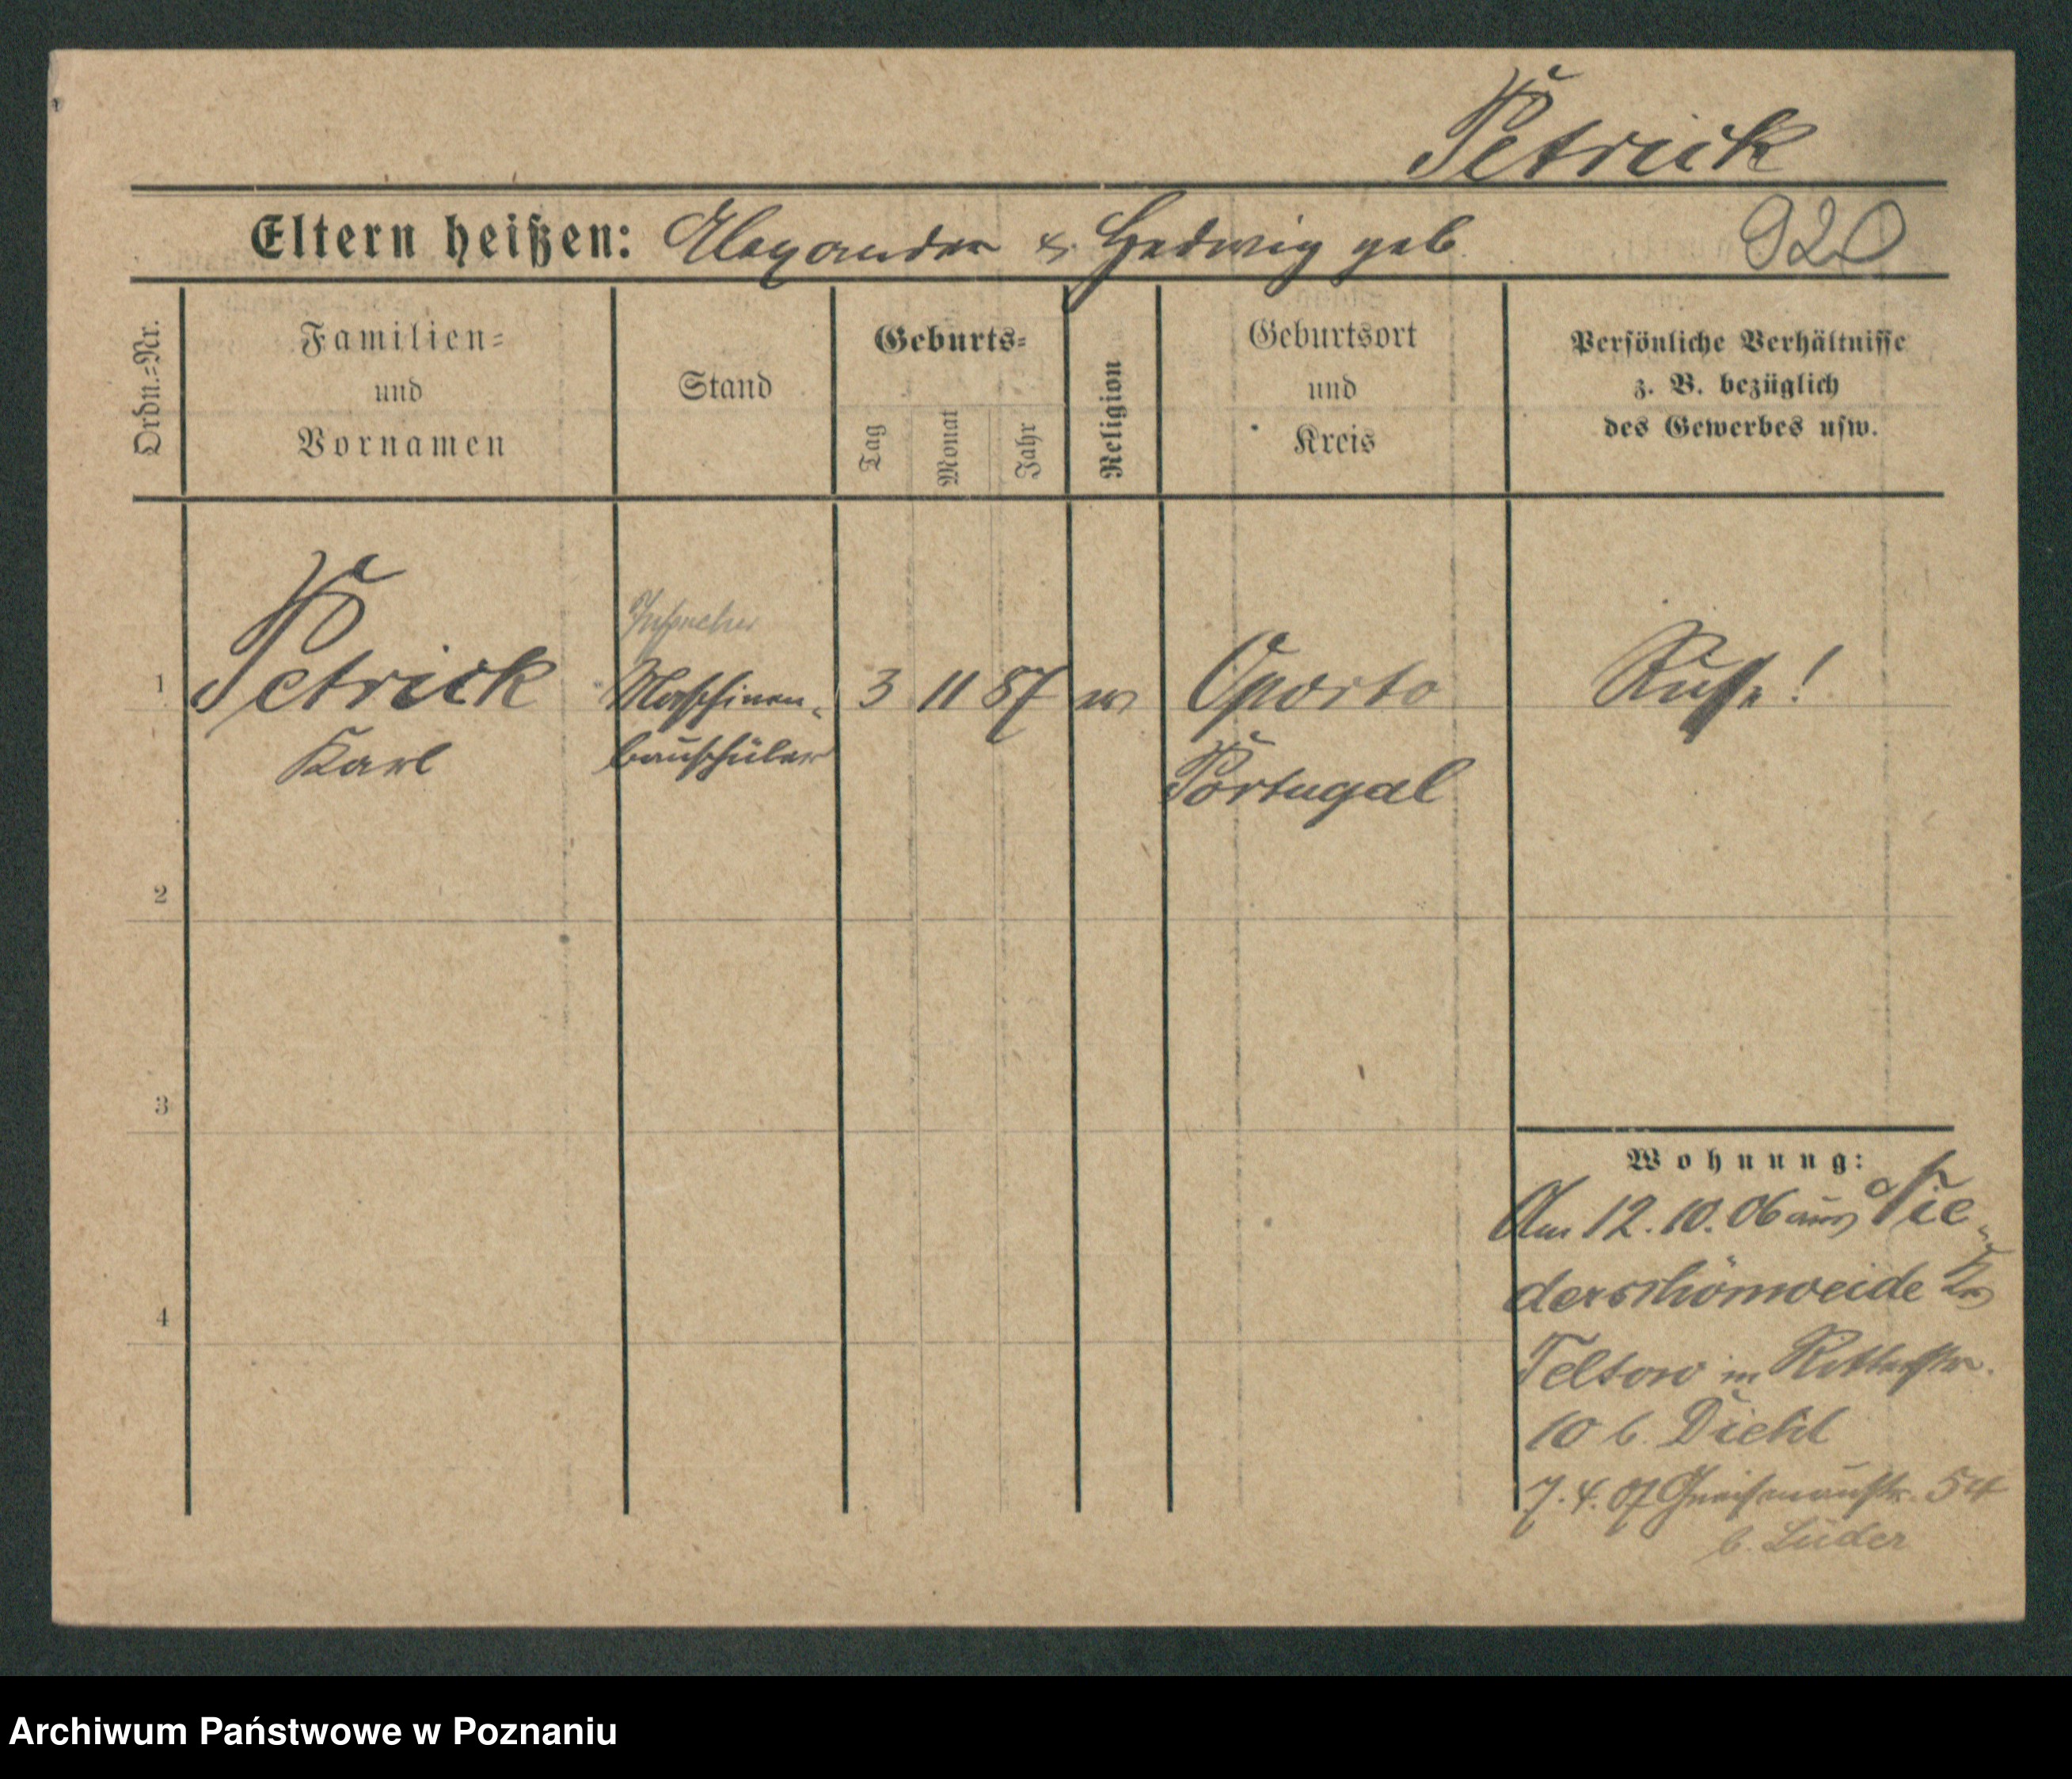 Petrick
Eltern heißen: Alexander & Hedwig geb.
920
Ordn.-Nr.
Familien-
und
Vornamen
Stand
Geburts-
Tag
Monat
Jahr
Religion
Geburtsort
und
Kreis
Persönliche Verhältnisse
z. B. bezüglich
des Gewerbes usw.
1
Petrick
Karl
Maschinen-
bauschüler
3 11 87
Oporto
Portugal
Russe!
2
3
4
Wohnung:
Am 12.10.06 aus Nie-
derschönweide Krs
Teltow in Ritterstr.
10 b. Diehl
7.4.07 Gneisenaustr. 54
b. Lüder
Archiwum Państwowe w Poznaniu